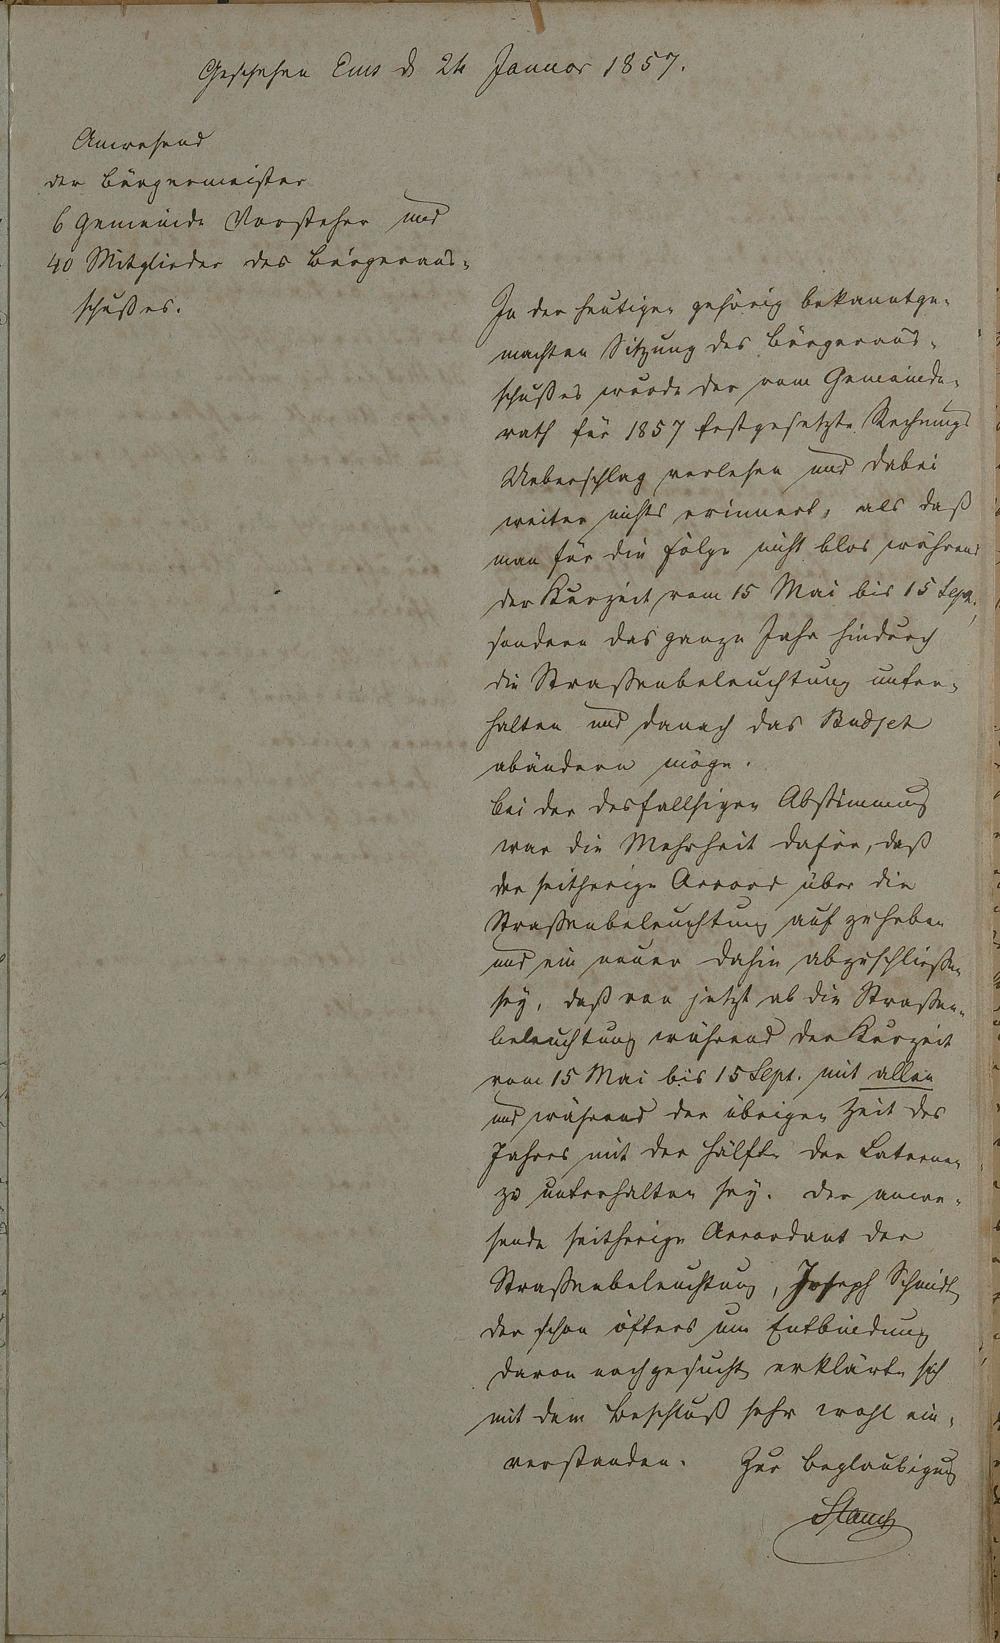 Geschehen Ems d 24 Januar 1857.
Anwesend
der Bürgermeister
6 Gemeinde Vorsteher und
40 Mitglieder des Bürgeraus-
schußes.
In der heutigen gehörig bekanntge-
machten Sitzung des Bürgeraus-
schußes wurde der vom Gemeinde-
rath für 1857 festgesetzte Rechnungs
Ueberschlag verlesen und dabei
weiter nichts erinnert, als daß
man für die Folge nicht blos während
der Kurzeit vom 15 Mai bis 15 Sept.
sondern das ganze Jahr hindurch
die Straßenbeleuchtung unter-
halten und danach das Budjet
abändern möge.
Bei der desfallsigen Abstimmung
war die Mehrheit dafür, daß
der seitherige Accord über die
Straßenbeleuchtung auf zu heben
und ein neuer dahin abzuschließen
sey, daß von jetzt ab die Straßen-
beleuchtung während der Kurzeit
vom 15 Mai bis 15 Sept. mit allen
und während der übrigen Zeit des
Jahres mit der Hälfte der Laternen
zu unterhalten sey. Der anwe-
sende seitherige Accordant der
Straßenbeleuchtung, Joseph Schmidt
der schon öfters um Entbindung
davon nachgesucht erklärte sich
mit dem Beschluß sehr wohl ein-
verstanden. Zur Beglaubigung